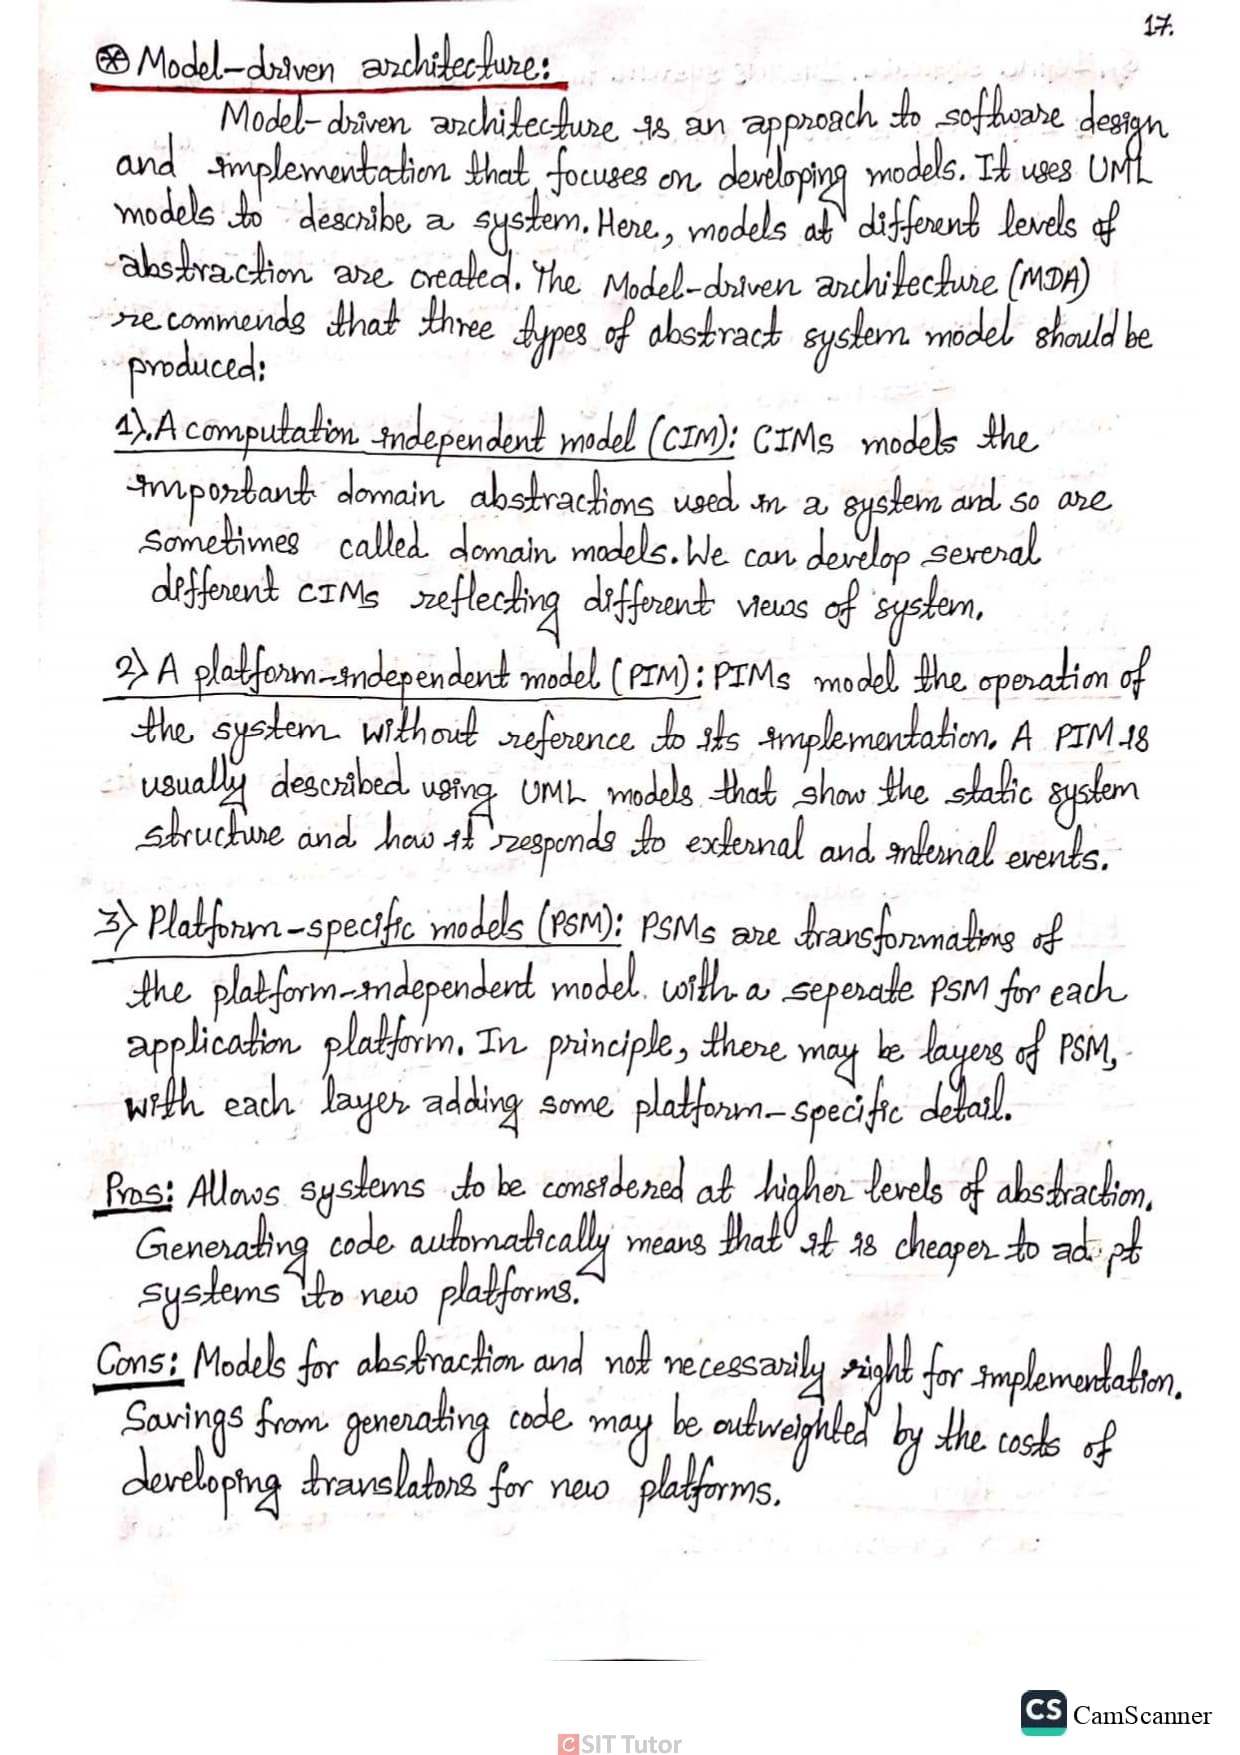 17.
⊛ Model-driven architecture:
Model-driven architecture is an approach to software design
and implementation that focuses on developing models. It uses UML
models to describe a system. Here, models at different levels of
abstraction are created. The Model-driven architecture (MDA)
recommends that three types of abstract system model should be
produced:
1). A computation independent model (CIM): CIMs models the
important domain abstractions used in a system and so are
sometimes called domain models. We can develop several
different CIMs reflecting different views of system.
2) A platform-independent model (PIM): PIMs model the operation of
the system without reference to its implementation. A PIM is
usually described using UML models that show the static system
structure and how it responds to external and internal events.
3) Platform-specific models (PSM): PSMs are transformations of
the platform-independent model with a seperate PSM for each
application platform. In principle, there may be layers of PSM,
with each layer adding some platform-specific detail.
Pros: Allows systems to be considered at higher levels of abstraction.
Generating code automatically means that it is cheaper to adapt
systems to new platforms.
Cons: Models for abstraction and not necessarily right for implementation.
Savings from generating code may be outweighted by the costs of
developing translators for new platforms.
CS CamScanner
CSIT Tutor